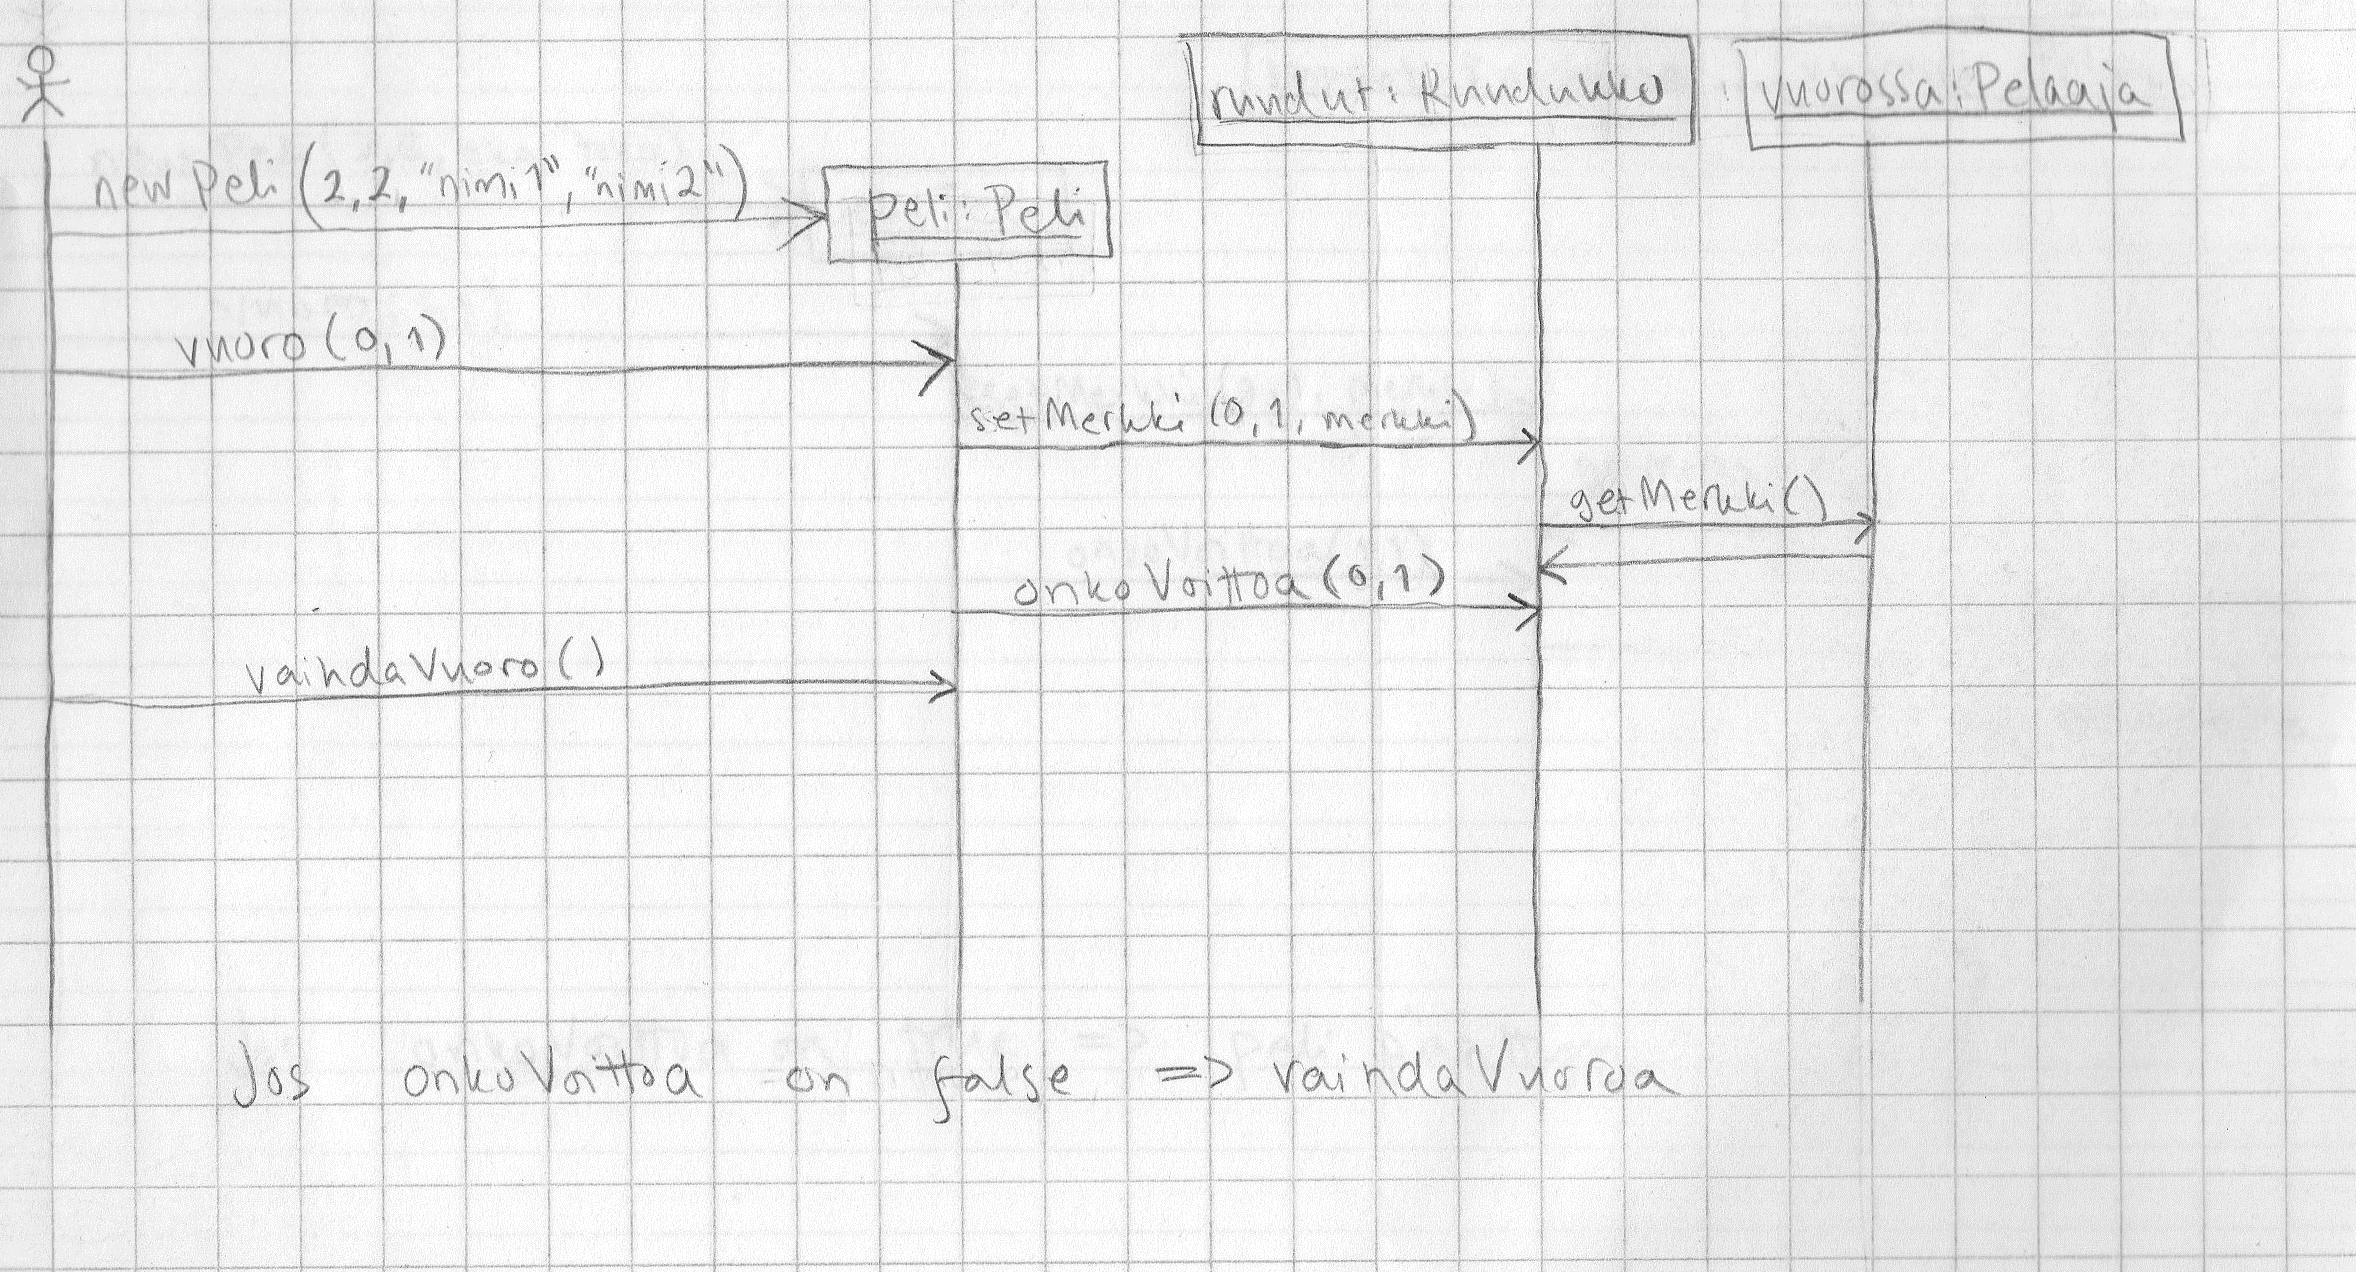 ruudut: Ruudukko
vuorossa: Pelaaja
new Peli (2,2, "nimi1", "nimi2")
peli: Peli
vuoro (0,1)
setMerkki (0,1, merkki)
getMerkki()
onkoVoittoa (0,1)
vaihdaVuoro ()
Jos onkoVoittoa on false => vaihdaVuoroa